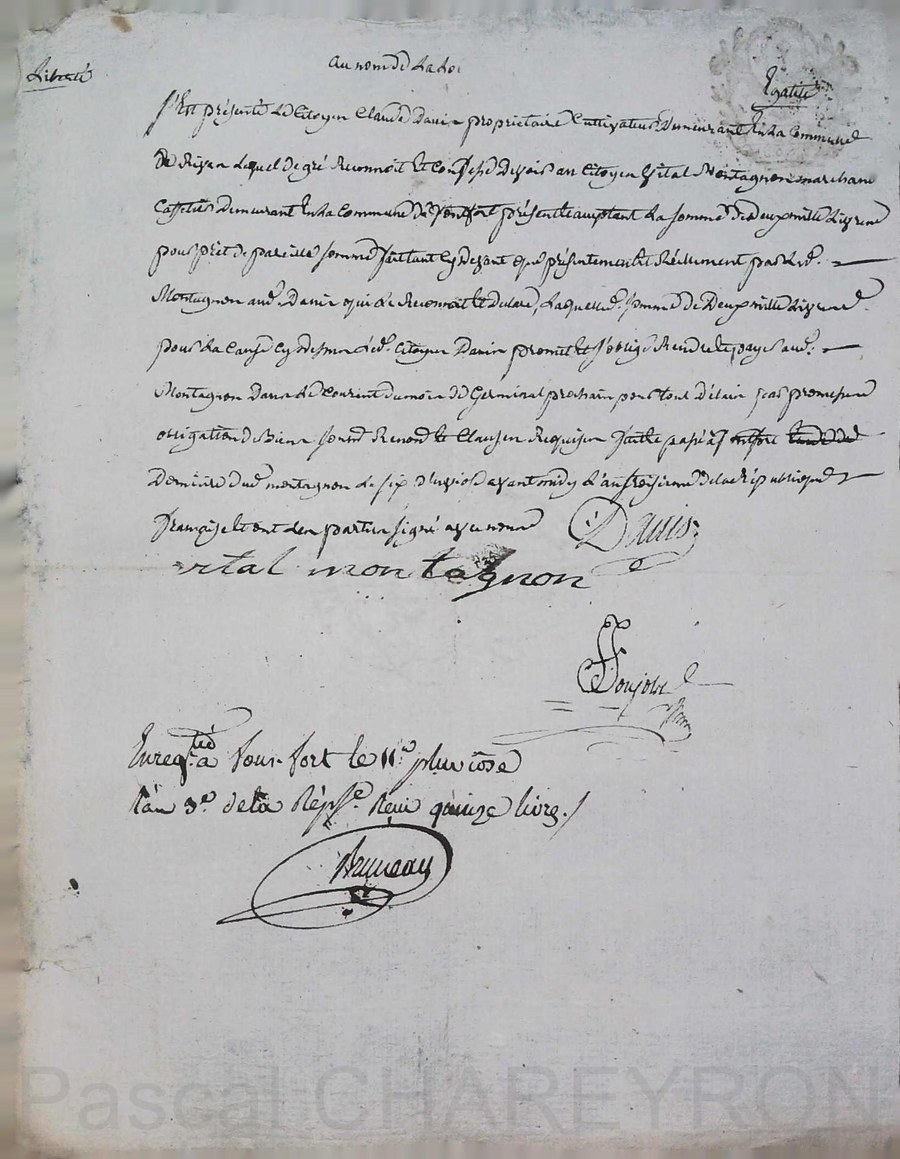 Liberté
au nom de la loi
Egalité
S'est présenté le Citoyen Claude Davin propriétaire Cultivateur demeurant en la Commune
de lequel de gré Reconnoit et Confesse devoir au Citoyen Vital Montagnon marchand
demeurant en la Commune de Monfort présent et acceptant la somme de deux mille Livres
pour prêt de pareille somme faittant cy devant que présentement et Réellement par led.
Montagnon aud. Davin qui le Reconnoit et declare, laquelle d. somme de Deux mille Livres
pour la cause cy dessus led. Citoyen Davin promet et s'oblige Rendre et payer aud.
Montagnon dans le Courant du mois de Germinal prochain pour tout délai par promesse
obligation de Biens soumis Renond. et Clauses Requises fait et passé à
Demeure dud. montagnon le six pluviose avant midy l'an troisieme de la république
française et ont les parties signé avec nous
Davin
vital montagnon
Enregtré à le 11e pluviose
l'an 3e de la Répe. Reçu quinze livres
Bruneau
Pascal CHAREYRON